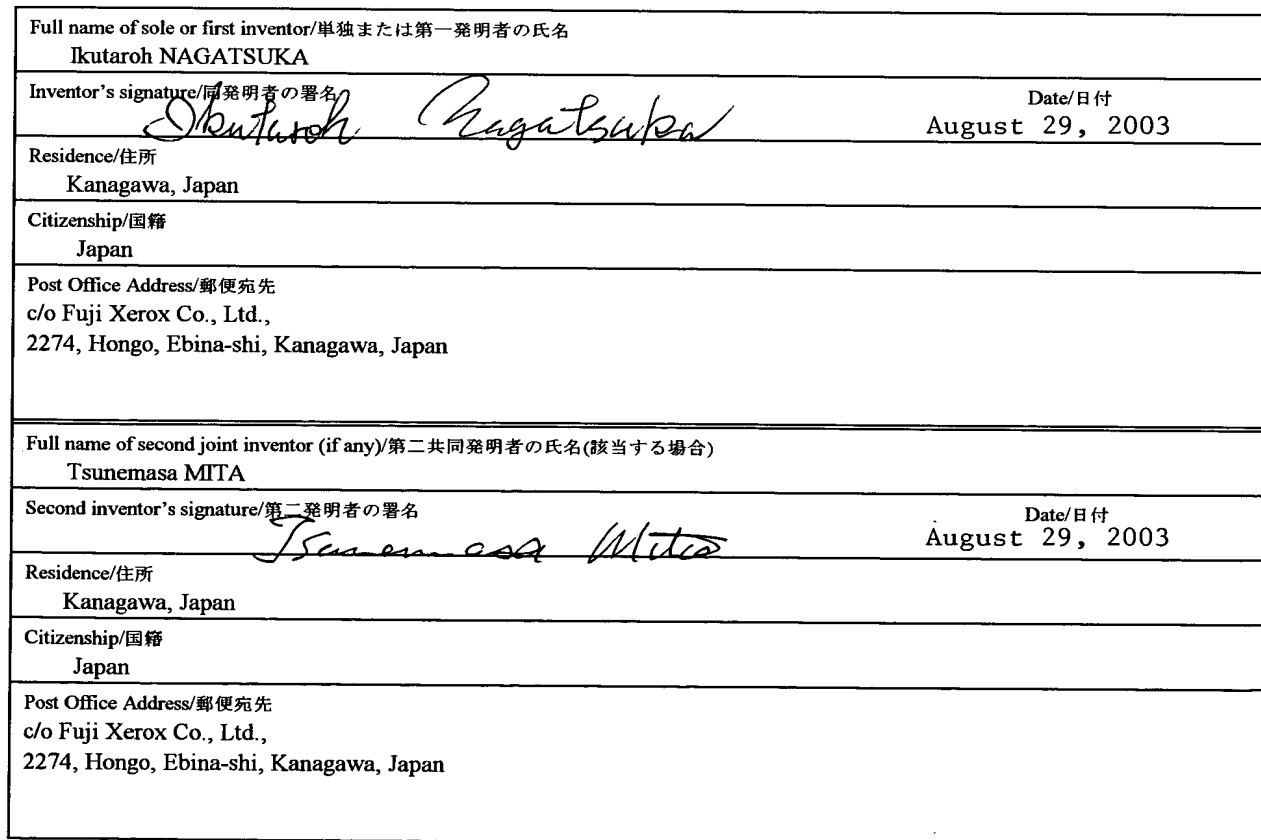 Full name of sole or first inventor/単独または第一発明者の氏名
Ikutaroh NAGATSUKA
Inventor's signature/同発明者の署名
Ikutaroh Nagatsuka
Date/日付
August 29, 2003
Residence/住所
Kanagawa, Japan
Citizenship/国籍
Japan
Post Office Address/郵便宛先
c/o Fuji Xerox Co., Ltd.,
2274, Hongo, Ebina-shi, Kanagawa, Japan
Full name of second joint inventor (if any)/第二共同発明者の氏名(該当する場合)
Tsunemasa MITA
Second inventor's signature/第二発明者の署名
Tsunemasa Mita
Date/日付
August 29, 2003
Residence/住所
Kanagawa, Japan
Citizenship/国籍
Japan
Post Office Address/郵便宛先
c/o Fuji Xerox Co., Ltd.,
2274, Hongo, Ebina-shi, Kanagawa, Japan